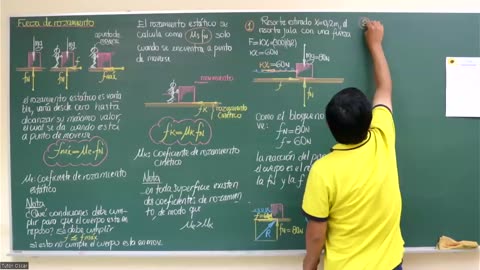 Fuerza de rozamiento
punto de
mg
fN
El rozamiento estático es varia
ble, varía desde cero hasta
alcanzar su máximo valor,
el cual se da cuando está
a punto de moverse
fmáx = μe·fN
μe: Coeficiente de rozamiento
estático
Nota
¿Qué condiciones debe cum-
plir para que el cuerpo esté en
reposo? Se debe cumplir
f ≤ fmáx
si esto no cumple el cuerpo está en mov.
El rozamiento estático se
calcula como μe fN solo
cuando se encuentra a punto
de moverse
movimiento
fk
rozamiento
cinético
fk = μk·fN
μk: Coeficiente de rozamiento
cinético
Nota
en toda superficie existen
dos coeficientes de rozamien
to de modo que
μe > μk
① Resorte estirado x=0,2m, el
resorte jala con una fuerza
KX=60N
mg=80N
fN
Como el bloque no
ve:
fN=80N
f=60N
la reacción del
la fN y la f
R
fN=80N
Tutor Oscar